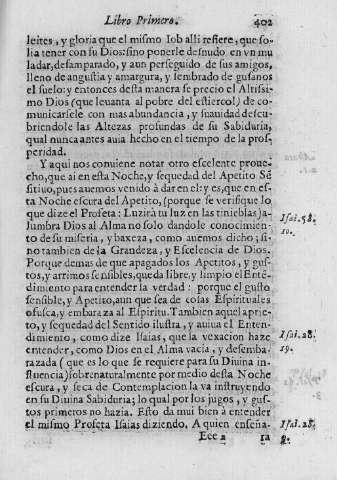 Libro Primero. 402
leites, y gloria que el mismo Iob alli refiere, que so-
lia tener con su Dios: sino ponerle desnudo en vn mu
ladar, desamparado, y aun perseguido de sus amigos,
lleno de angustia y amargura, y sembrado de gusanos
el suelo: y entonces desta manera se precio el Altissi-
mo Dios (que leuanta al pobre del estiercol) de co-
municarsele con mas abundancia, y suauidad descu-
briendole las Altezas profundas de su Sabiduria,
qual nunca antes auia hecho en el tiempo de la pros-
peridad.
Y aqui nos conuiene notar otro escelente proue-
cho, que ai en esta Noche, y sequedad del Apetito Sē
sitiuo, pues auemos venido à dar en el: y es, que en es-
ta Noche escura del Apetito, (porque se verifique lo
que dize el Profeta: Luzirà tu luz en las tinieblas) a-
lumbra Dios al Alma no solo dandole conocimien-
to de su miseria, y baxeza, como auemos dicho; si-
no tambien de la Grandeza, y Escelencia de Dios.
Porque demas de que apagados los Apetitos, y gus-
tos, y arrimos sēsibles, queda libre, y limpio el Entē-
dimiento para entender la verdad: porque el gusto
sensible, y Apetito, aun que sea de cosas Espirituales
ofusca, y embaraza al Espiritu. Tambien aquel aprie-
to, y sequedad del Sentido ilustra, y auiua el Enten-
dimiento, como dize Isaias, que la vexacion haze
entender, como Dios en el Alma vacia, y desemba-
razada (que es lo que se requiere para su Diuina in-
fluencia) sobrenaturalmente por medio desta Noche
escura, y seca de Contemplacion la va instruyendo
en su Diuina Sabiduria; lo qual por los jugos, y gus-
tos primeros no hazia. Esto da mui bien à entender
el mismo Profeta Isaias diziendo, A quien enseña-
Eee 2 ra
Isai. 58.
10.
Isai. 28.
19.
Isai. 28.
9.